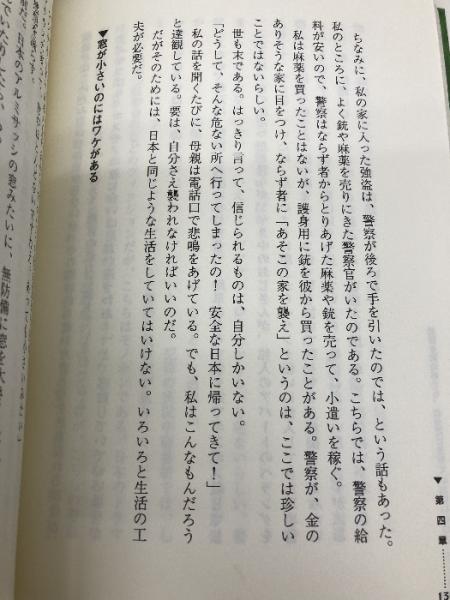 ▼第四章………13
ちなみに、私の家に入った強盗は、警察が後ろで手を引いたのでは、という話もあった。
私のところに、よく銃や麻薬を売りにきた警察官がいたのである。こちらでは、警察の給
料が安いので、警察はならず者からとりあげた麻薬や銃を売って、小遣いを稼ぐ。
私は麻薬を買ったことはないが、護身用に銃を彼から買ったことがある。警察が、金の
ありそうな家に目をつけ、ならず者に「あそこの家を襲え」というのは、ここでは珍しい
ことではないらしい。
世も末である。はっきり言って、信じられるものは、自分しかいない。
「どうして、そんな危ない所へ行ってしまったの！　安全な日本に帰ってきて！」
私の話を聞くたびに、母親は電話口で悲鳴をあげている。でも、私はこんなもんだろう
と達観している。要は、自分さえ襲われなければいいのだ。
だがそのためには、日本と同じような生活をしていてはいけない。いろいろと生活の工
夫が必要だ。
▼窓が小さいのにはワケがある
日本のアルミサッシの窓みたいに、無防備に窓を大き